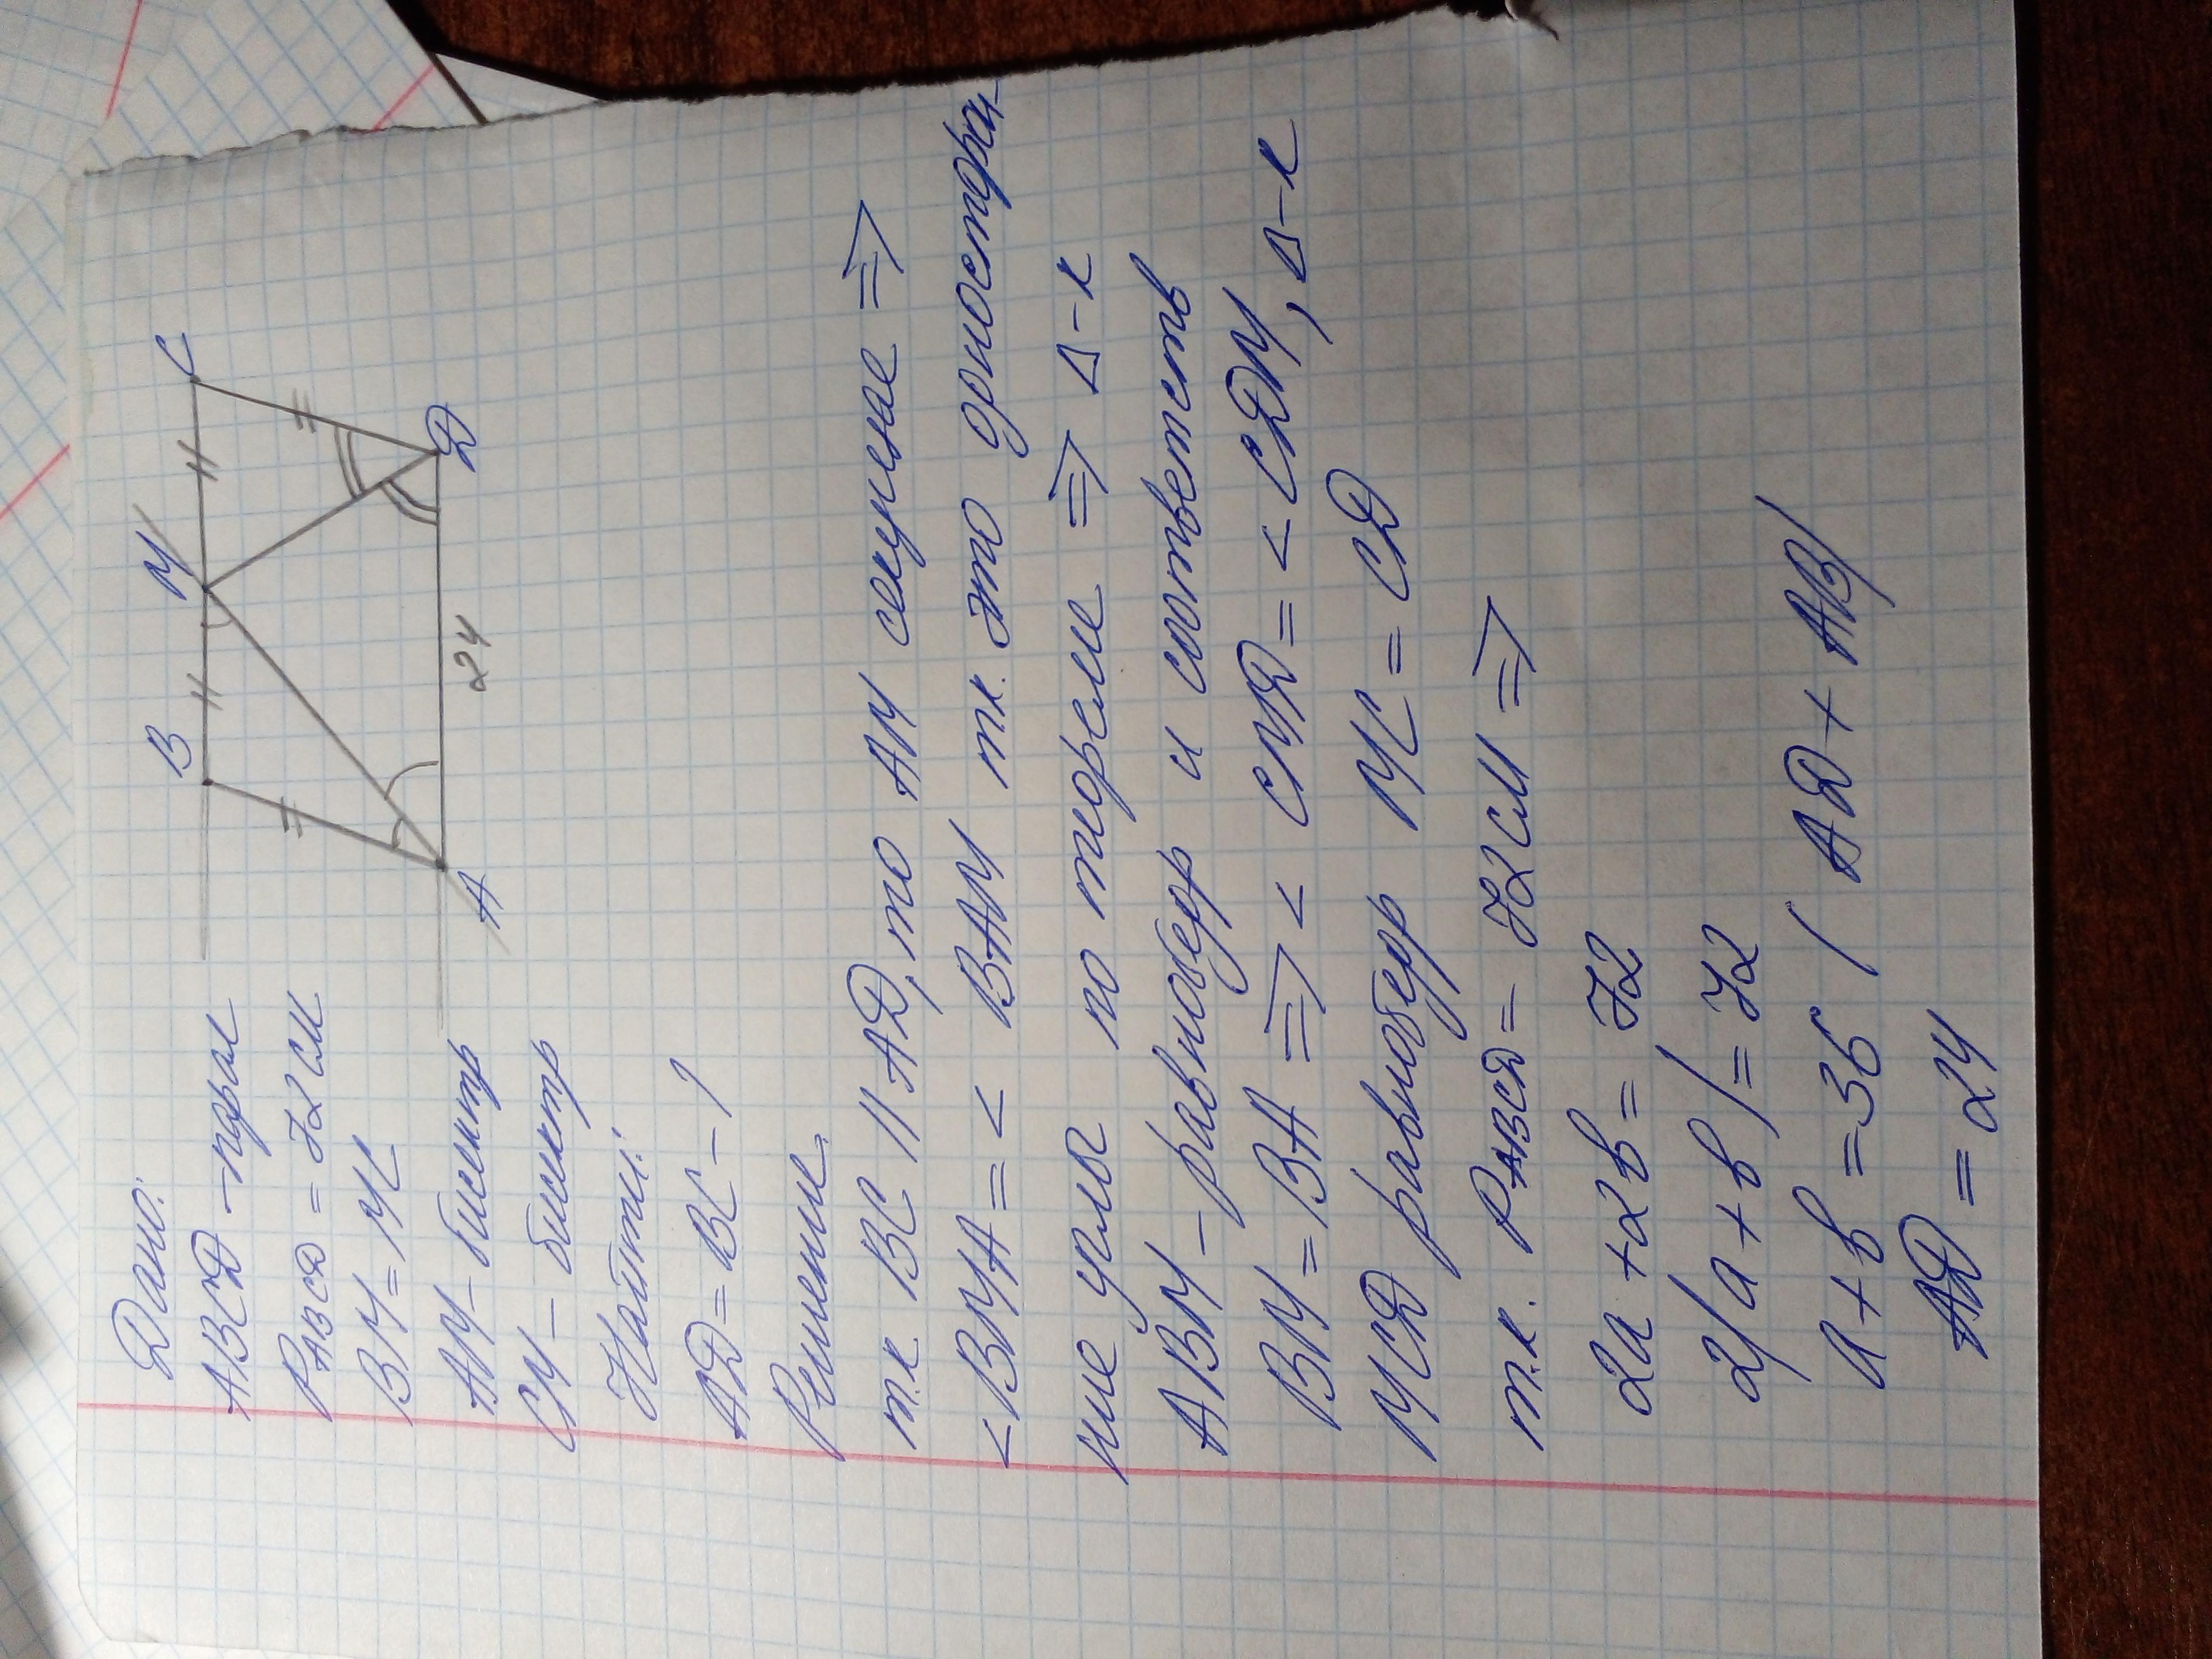 Дано:
ABCD - парал
PABCD = 72 см
BM = MC
AM - биссектр
СМ - биссектр
Найти:
AD = BC - ?
B M C
A 24 D
Решение.
т.к BC || AD, то AM секущая =>
<BMA = < BAM т.к. это односторон-
ние углы по теореме => Δ-к
ABM - равнобедр и соответств
BM = BA => < CMD = < CDM, Δ-к
MCD равнобедр MC = CD
т.к. PABCD = 72 см =>
2a + 2b = 72
2(a + b) = 72
a + b = 36 ( AD + AB)
AD = 24